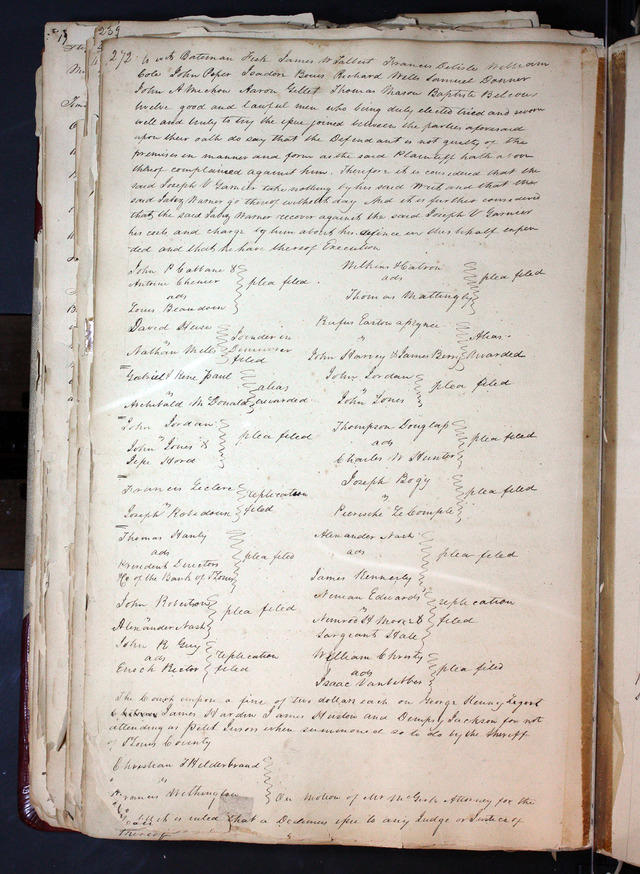 239
272
to wit Bateman Fisk James W Talbert Francis Delisle William
Cole John Peper Isadon Bouis Richard Wells Samuel Donner
John A Michon Aaron Gillet Thomas Mason Baptiste Belcour
twelve good and lawful men who being duly elected tried and sworn
well and truly to try the ipue joined between the parties aforesaid
upon their oath do say that the Defendant is not guilty of the
premises in manner and form as the said Plaintiff hath above
thereof complained against him. Therefore it is considered that the
said Joseph V Garnier take nothing by his said Writ and that the
said Jabez Warner go thereof without day And it is further considered
that the said Jabez Warner recover against the said Joseph V Garnier
his costs and charge by him about his defence in this behalf expen
ded and that he have thereof Execution
John P Cabbane &
Antoine Chenier plea filed
ads
Louis Beaudoin
Wilkins &
ads plea filed
Thomas Mattingly
David Heise Joinder in
" Demurrer
Nathan Mills filed
Rufus Easton apignee Alias
"
John Harvey & James Berry Awarded
Gabriel & Rene Paul alias
"
Archibald McDonald awarded
John Jordan
" plea filed
John Jones
John Jordan
" plea filed
John Jones &
Jepe Hord
Thompson Douglap
ads plea filed
Charles W Hunter
Francis Leclerc replication
"
Joseph Robedouin filed
Joseph Bogy
" plea filed
Pierische Le Compte
Thomas Hanly
ads plea filed
President Directors
&c of the Bank of St Louis
Alexander Nash
ads plea filed
James Kennerly
John Robertson
" plea filed
Alexander Nash
Ninian Edwards replication
"
Nimrod H Moore & filed
Sargeant Hale
John R Guy
ads replication
Enoch Rector filed
William Christy
ads plea filed
Isaac Vanbibber
The Court impose a fine of two dollars each on George Henny
James Harden James and Dempsy Jackson for not
attending as petit Jurors when summoned so to do by the Sheriff
of St Louis County
Christian Hilderbrand
" vs
Francis Wethington
On Motion of Mr McGirk Attorney for the
it is ruled that a Dedimus ipue to any Judge or Justice of
thereof